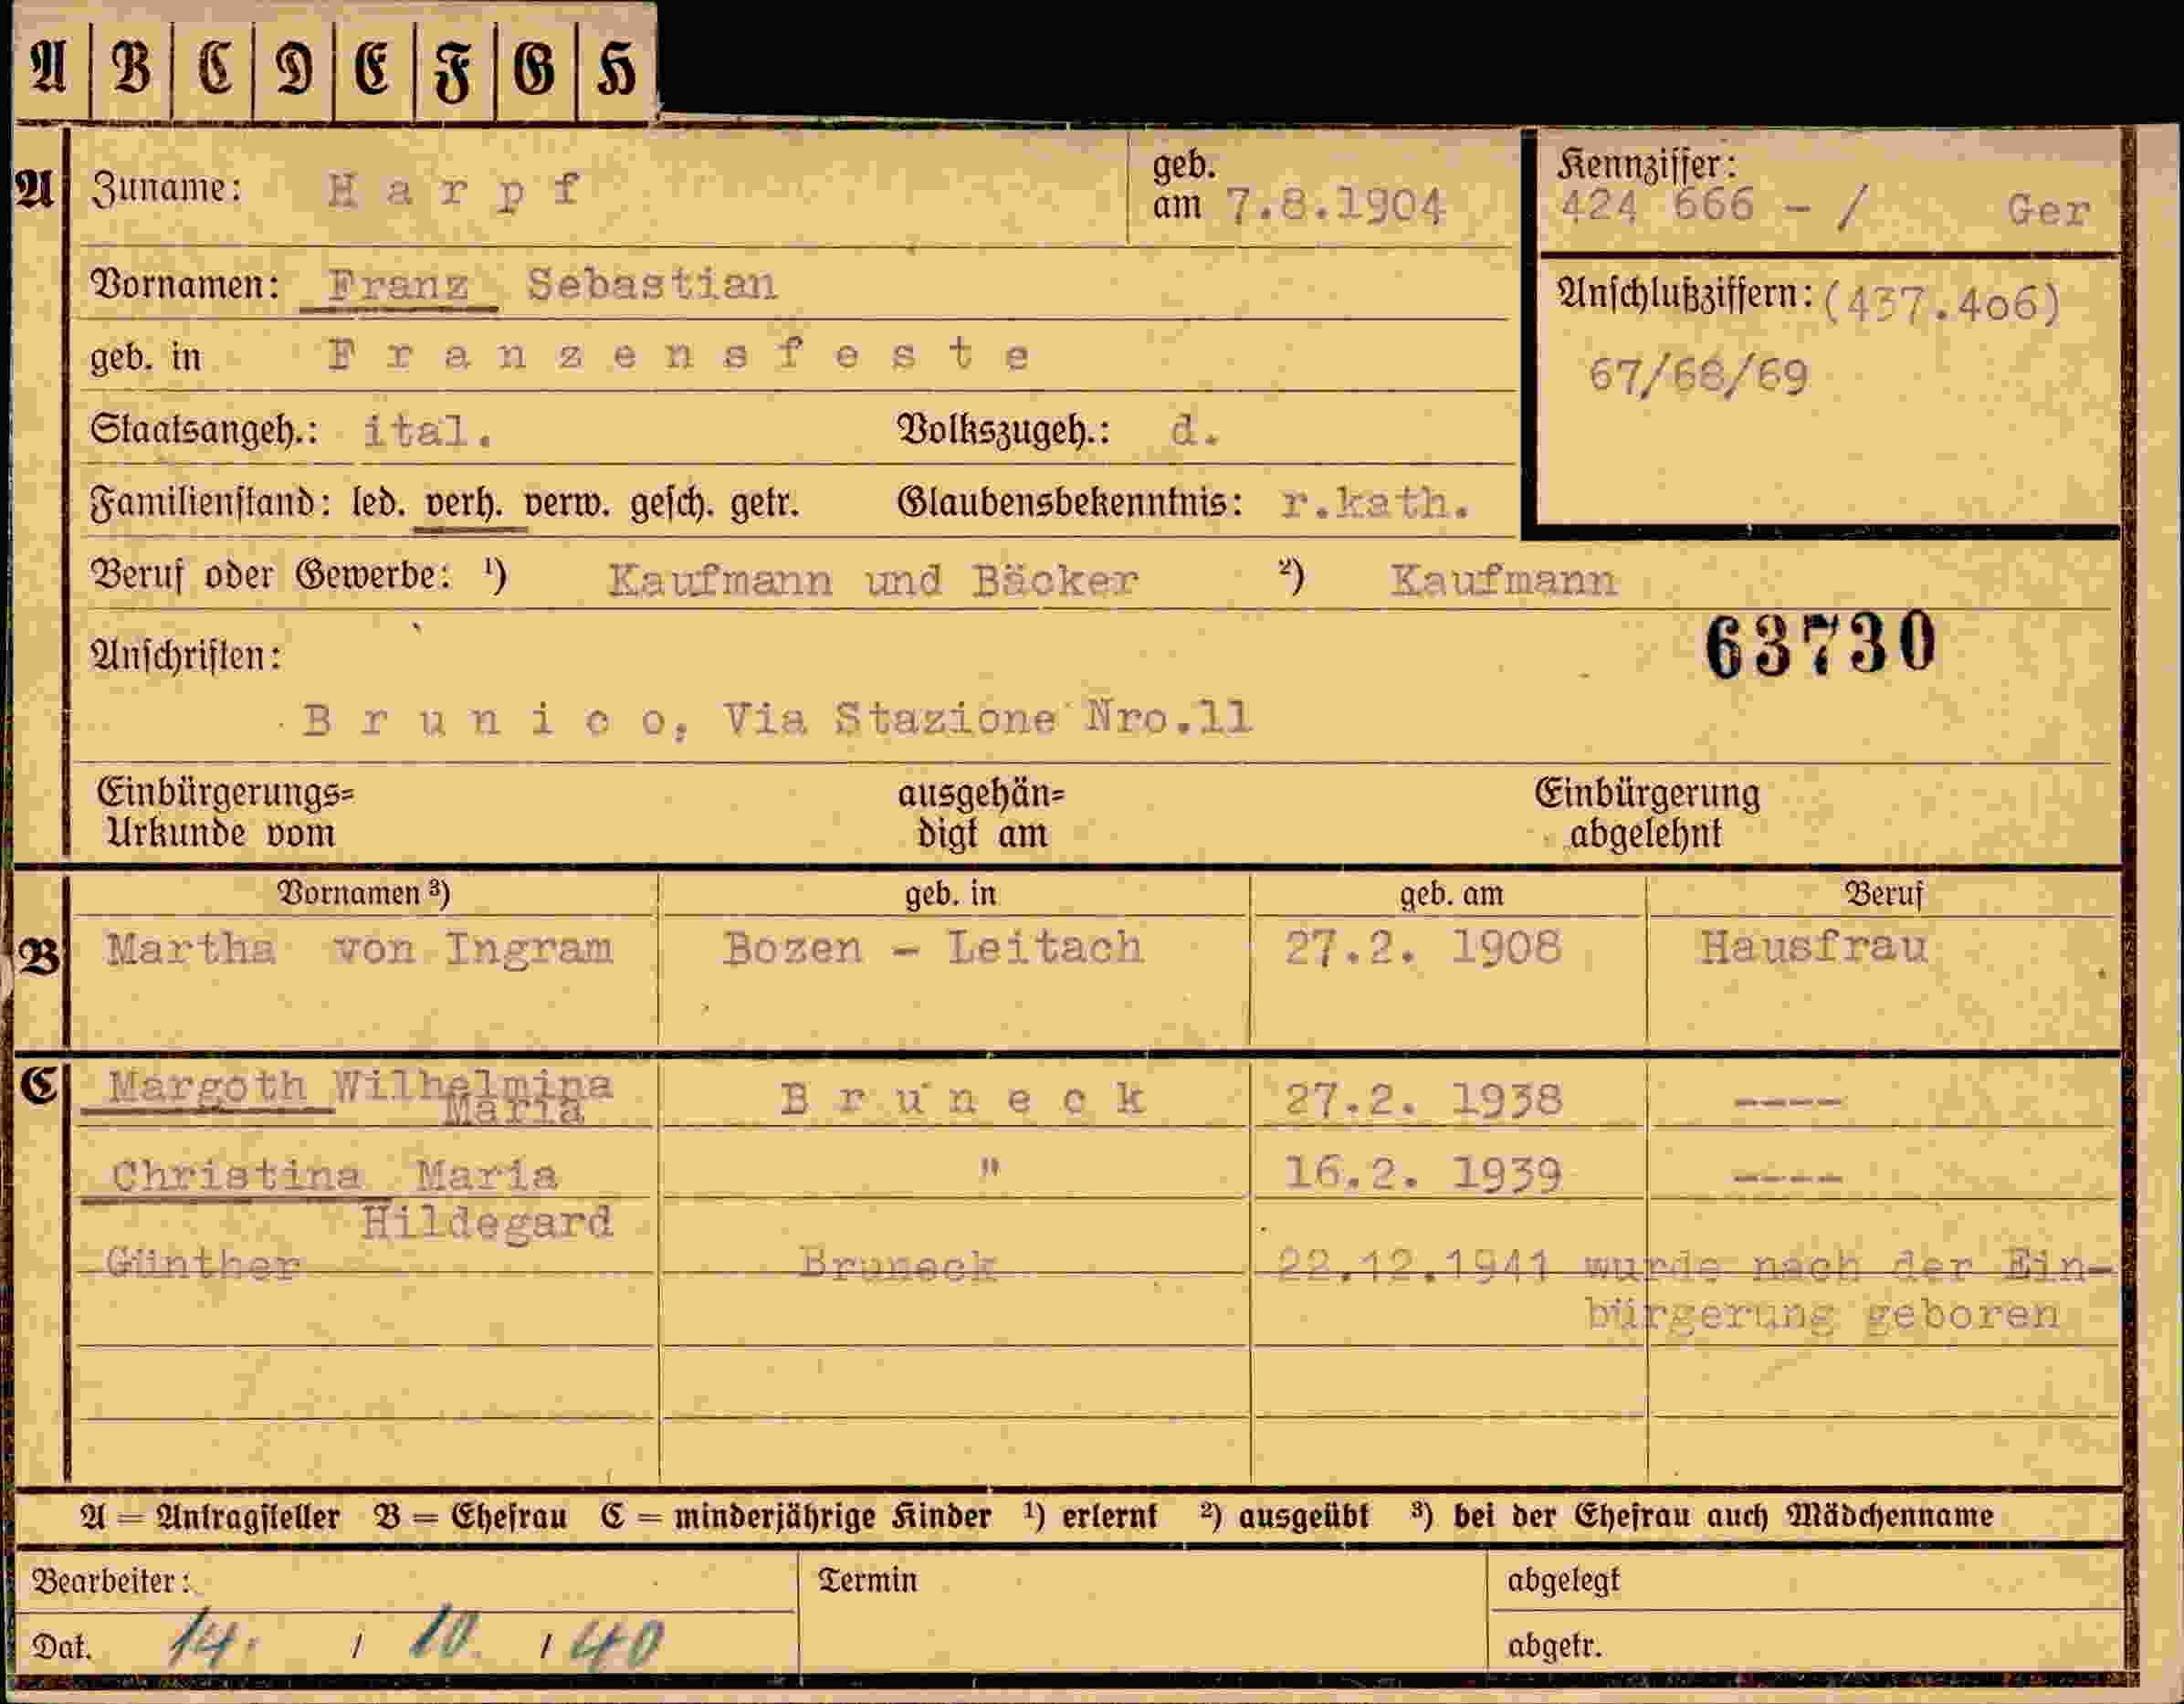 A B C D E F G H
A Zuname: Harpf geb. am 7.8.1904 Kennziffer: 424 666 - / Ger
Vornamen: Franz Sebastian Anschlußziffern: (437.4o6)
geb. in Franzensfeste 67/68/69
Staatsangeh.: ital. Volkszugeh.: d.
Familienstand: led. verh. verw. gesch. getr. Glaubensbekenntnis: r.kath.
Beruf oder Gewerbe: ¹) Kaufmann und Bäcker ²) Kaufmann
Anschriften: 63730
Brunico, Via Stazione Nro.11
Einbürgerungs= ausgehän= Einbürgerung
Urkunde vom digt am abgelehnt
Vornamen ³) geb. in geb. am Beruf
B Martha von Ingram Bozen - Leitach 27.2. 1908 Hausfrau
C Margoth Wilhelmina Bruneck 27.2. 1938 ----
Maria
Christina Maria " 16.2. 1939 ----
Hildegard
Günther Bruneck 22.12.1941 wurde nach der Ein-
bürgerung geboren
A = Antragsteller B = Ehefrau C = minderjährige Kinder ¹) erlernt ²) ausgeübt ³) bei der Ehefrau auch Mädchenname
Bearbeiter: Termin abgelegt
Dat. 14. / 10. / 40 abgetr.